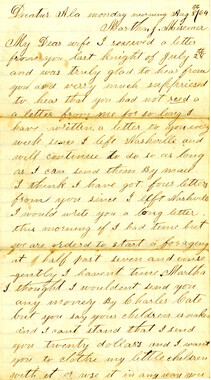 Decatur Ala monday morning Aug 8th 64
Martha J Misemer
My Dear wife I received a letter
from you last knight of July 24th
and was truly glad to hear from
you and very much supprised
to hear that you had not recd
a letter from me for so long I
have written a letter to you every
week since I left Nashville and
will continue to do so as long
as I can send them By mail
I think I have got four letters
from you since I left Nashville
I would write you a long letter
this morning if I had time but
we are orderd to start a foragen
at half part seven and consequently
gently I havent time Martha
I thought I wouldent send you
any money By Charles Cate
but you say your children is naked
and I cant stand that I send
you twenty dollars and I want
you to clothe my little children
with it or use it in any way you